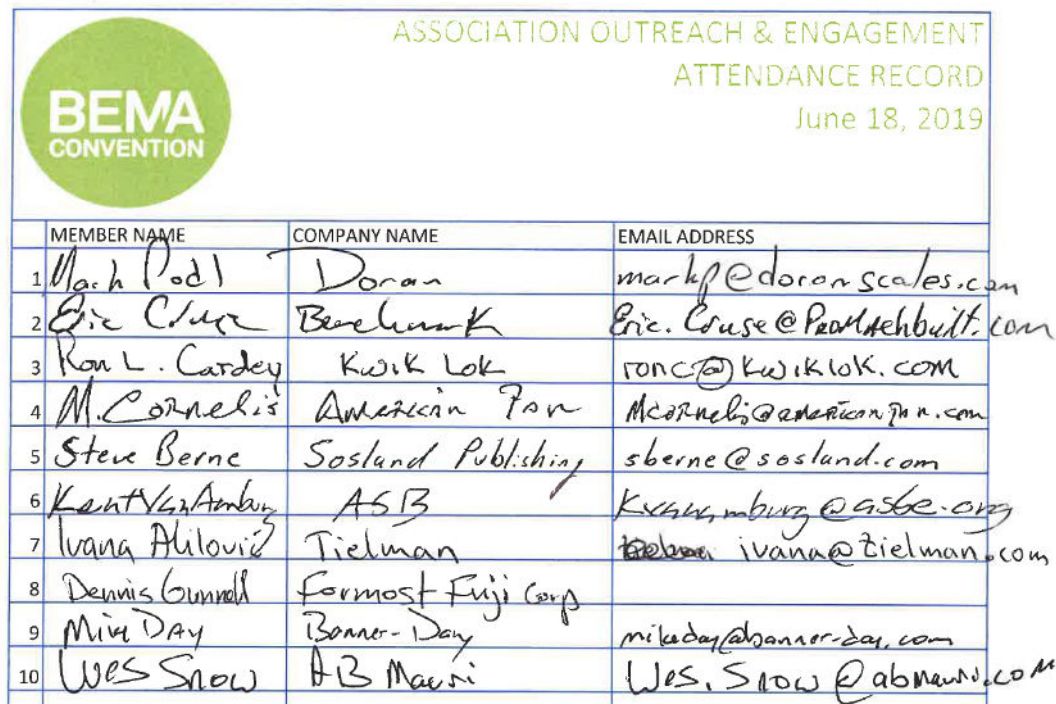 ASSOCIATION OUTREACH & ENGAGEMENT
ATTENDANCE RECORD
June 18, 2019
BEMA
CONVENTION
MEMBER NAME COMPANY NAME EMAIL ADDRESS
1 Mark Podl Doran markp@doranscales.com
2 Eric Cruse Benchmark Eric.Cruse@ProMachbuilt.com
3 Ron L. Cardey Kwik Lok ronc@kwiklok.com
4 M. Cornelis American Pan Mcornelis@americanpan.com
5 Steve Berne Sosland Publishing sberne@sosland.com
6 Kent Van Amburg ASB Kvanamburg@asbe.org
7 Ivana Alilović Tielman ivana@tielman.com
8 Dennis Gunnell Formost Fuji Corp
9 Mike Day Banner-Day mikeday@banner-day.com
10 Wes Snow AB Mauri Wes.Snow@abmauri.com